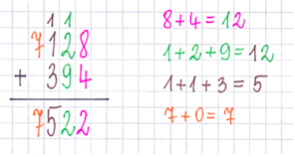 1 1
7128
+ 394
7522
8+4=12
1+2+9=12
1+1+3=5
7+0=7